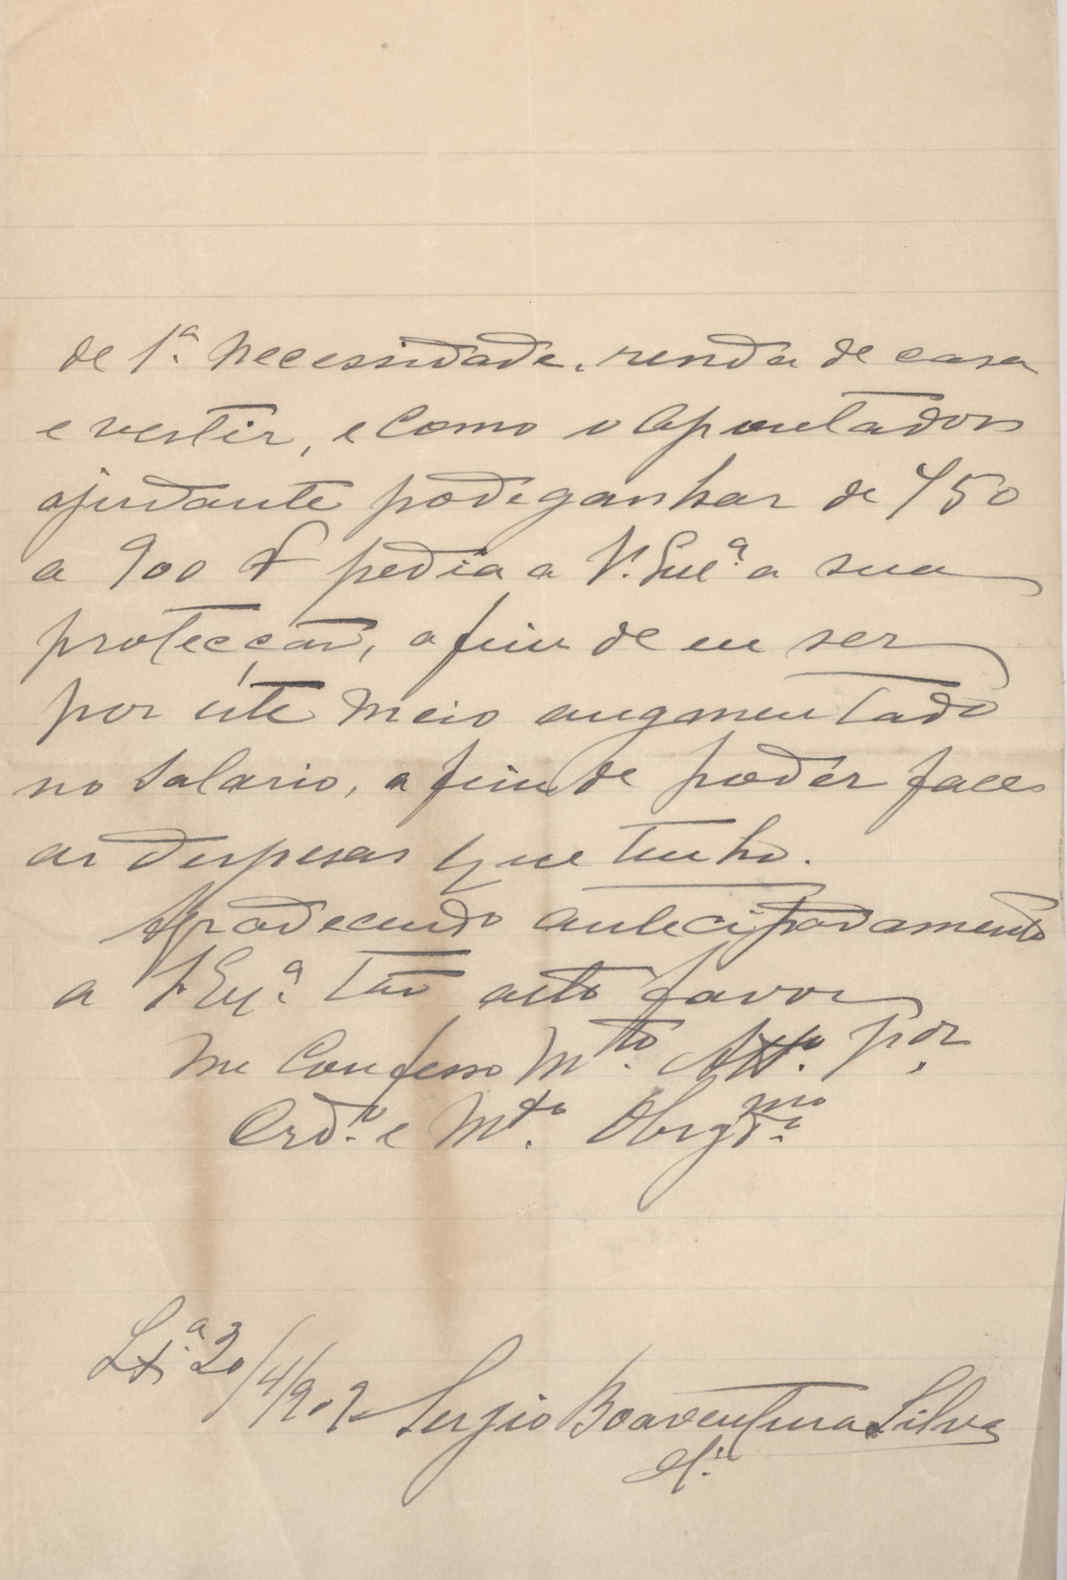 de 1.ª Necessidade, renda de casa
e vestir, e como o Apontador
ajudante pode ganhar de 750
a 900 pedia a V. Exc.ª a sua
protecção, a fim de eu ser
por este meio augmentado
no salario, a fim de poder faces
as despesas que tenho.
Agradecendo antecipadamente
a V. Ex.ª tão alto favor
me Confesso M.to Att.o por
Crd.o e M.to Obrgd.mo
Lx.ª 20/4/902 Sergio Boaventura Silva